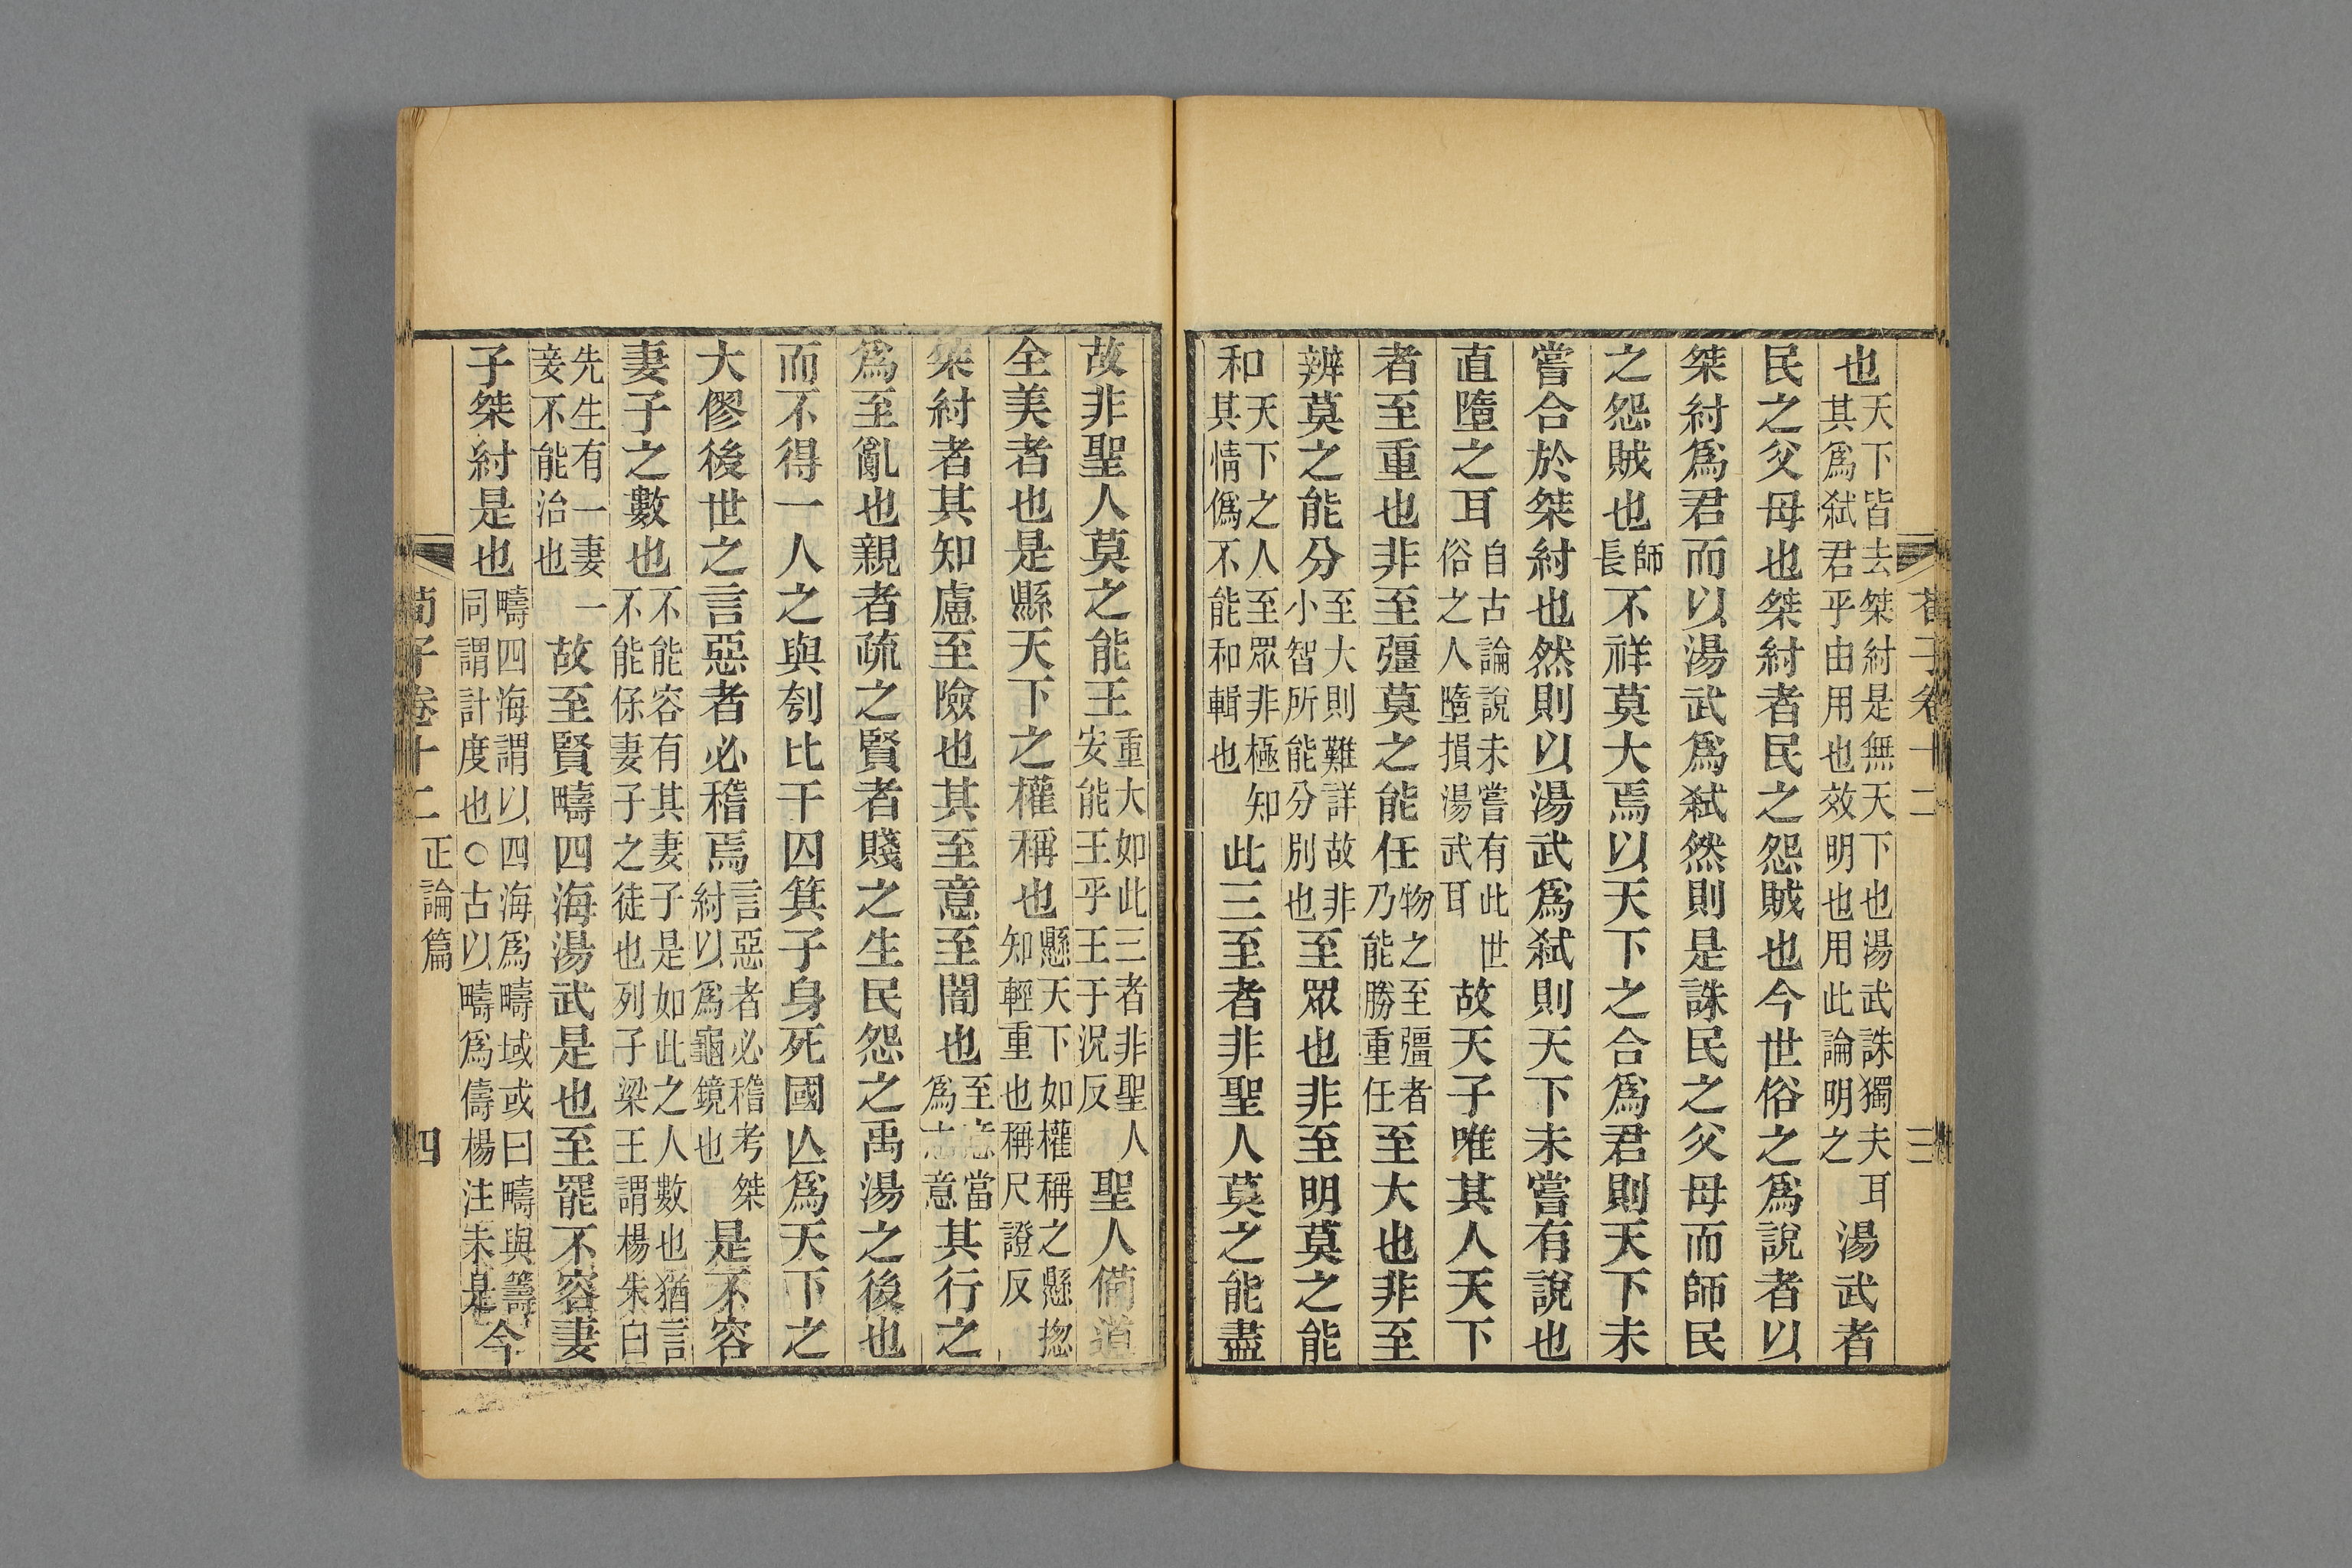 荀子卷十二
三
也天下皆去桀紂是無天下也湯武誅獨夫耳其爲弑君乎由用也效明也用此論明之湯武者
民之父母也桀紂者民之怨賊也今世俗之爲說者以
桀紂爲君而以湯武爲弑然則是誅民之父母而師民
之怨賊也師長不祥莫大焉以天下之合爲君則天下未
嘗合於桀紂也然則以湯武爲弑則天下未嘗有說也
直墮之耳自古論說未嘗有此世俗之人墮損湯武耳故天子唯其人天下
者至重也非至彊莫之能任物之至彊者乃能勝重任至大也非至
辨莫之能分至大則難詳故非小智所能分別也至眾也非至明莫之能
和天下之人至眾非極知其情僞不能和輯也此三至者非聖人莫之能盡
故非聖人莫之能王重大如此三者非聖人安能王乎王于況反聖人備道
全美者也是縣天下之權稱也懸天下如權稱之懸揔知輕重也稱尺證反
桀紂者其知慮至險也其至意至闇也至意當爲志意其行之
爲至亂也親者疏之賢者賤之生民怨之禹湯之後也
而不得一人之與刳比干囚箕子身死國亾爲天下之
大僇後世之言惡者必稽焉言惡者必稽考桀紂以爲龜鏡也是不容
妻子之數也不能容有其妻子是如此之人數也猶言不能保妻子之徒也列子梁王謂楊朱曰
先生有一妻一妾不能治也故至賢疇四海湯武是也至罷不容妻
子桀紂是也疇四海謂以四海爲疇域或曰疇與籌同謂計度也○古以疇爲儔楊注未是今
荀子卷十二 正論篇
四